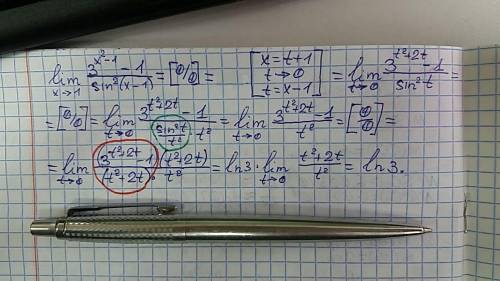 lim x→1 (3^(x²-1) - 1)/(sin²(x-1)) = [0/0] = [x = t+1, t→0, t = x-1] = lim t→0 (3^(t²+2t) - 1)/(sin²t) =
= [0/0] = lim t→0 (3^(t²+2t) - 1)/((sin²t/t²) · t²) = lim t→0 (3^(t²+2t) - 1)/t² = [0/0] =
= lim t→0 ((3^(t²+2t) - 1)/(t²+2t)) · (t²+2t)/t² = ln3 · lim t→0 (t²+2t)/t² = ln3.